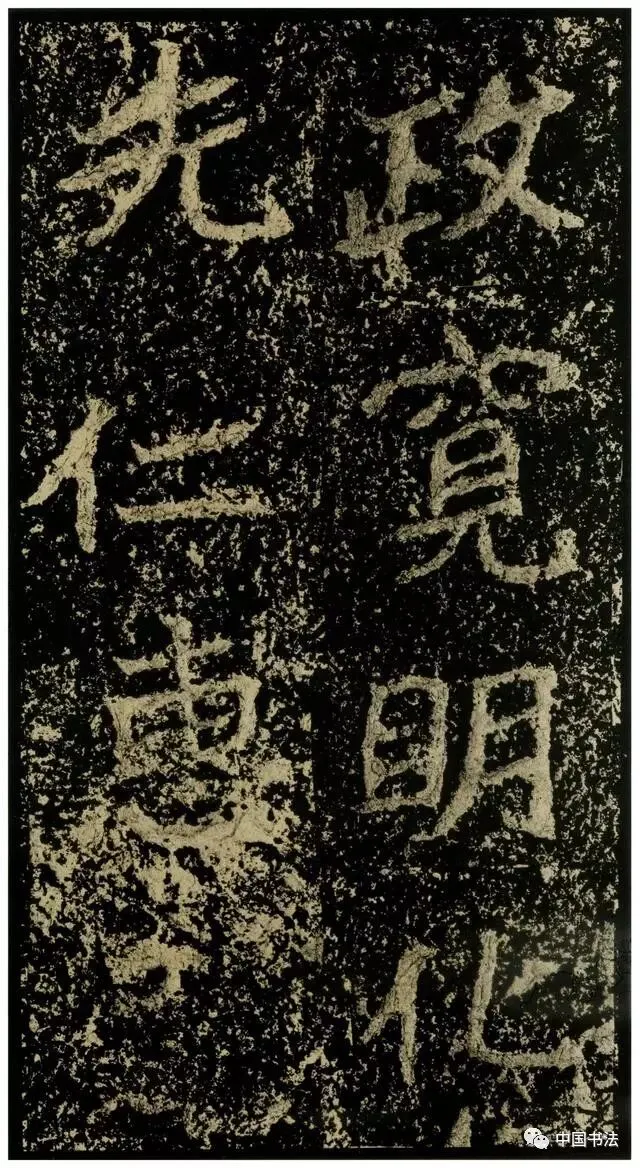 政寬明化
先仁惠
中国书法